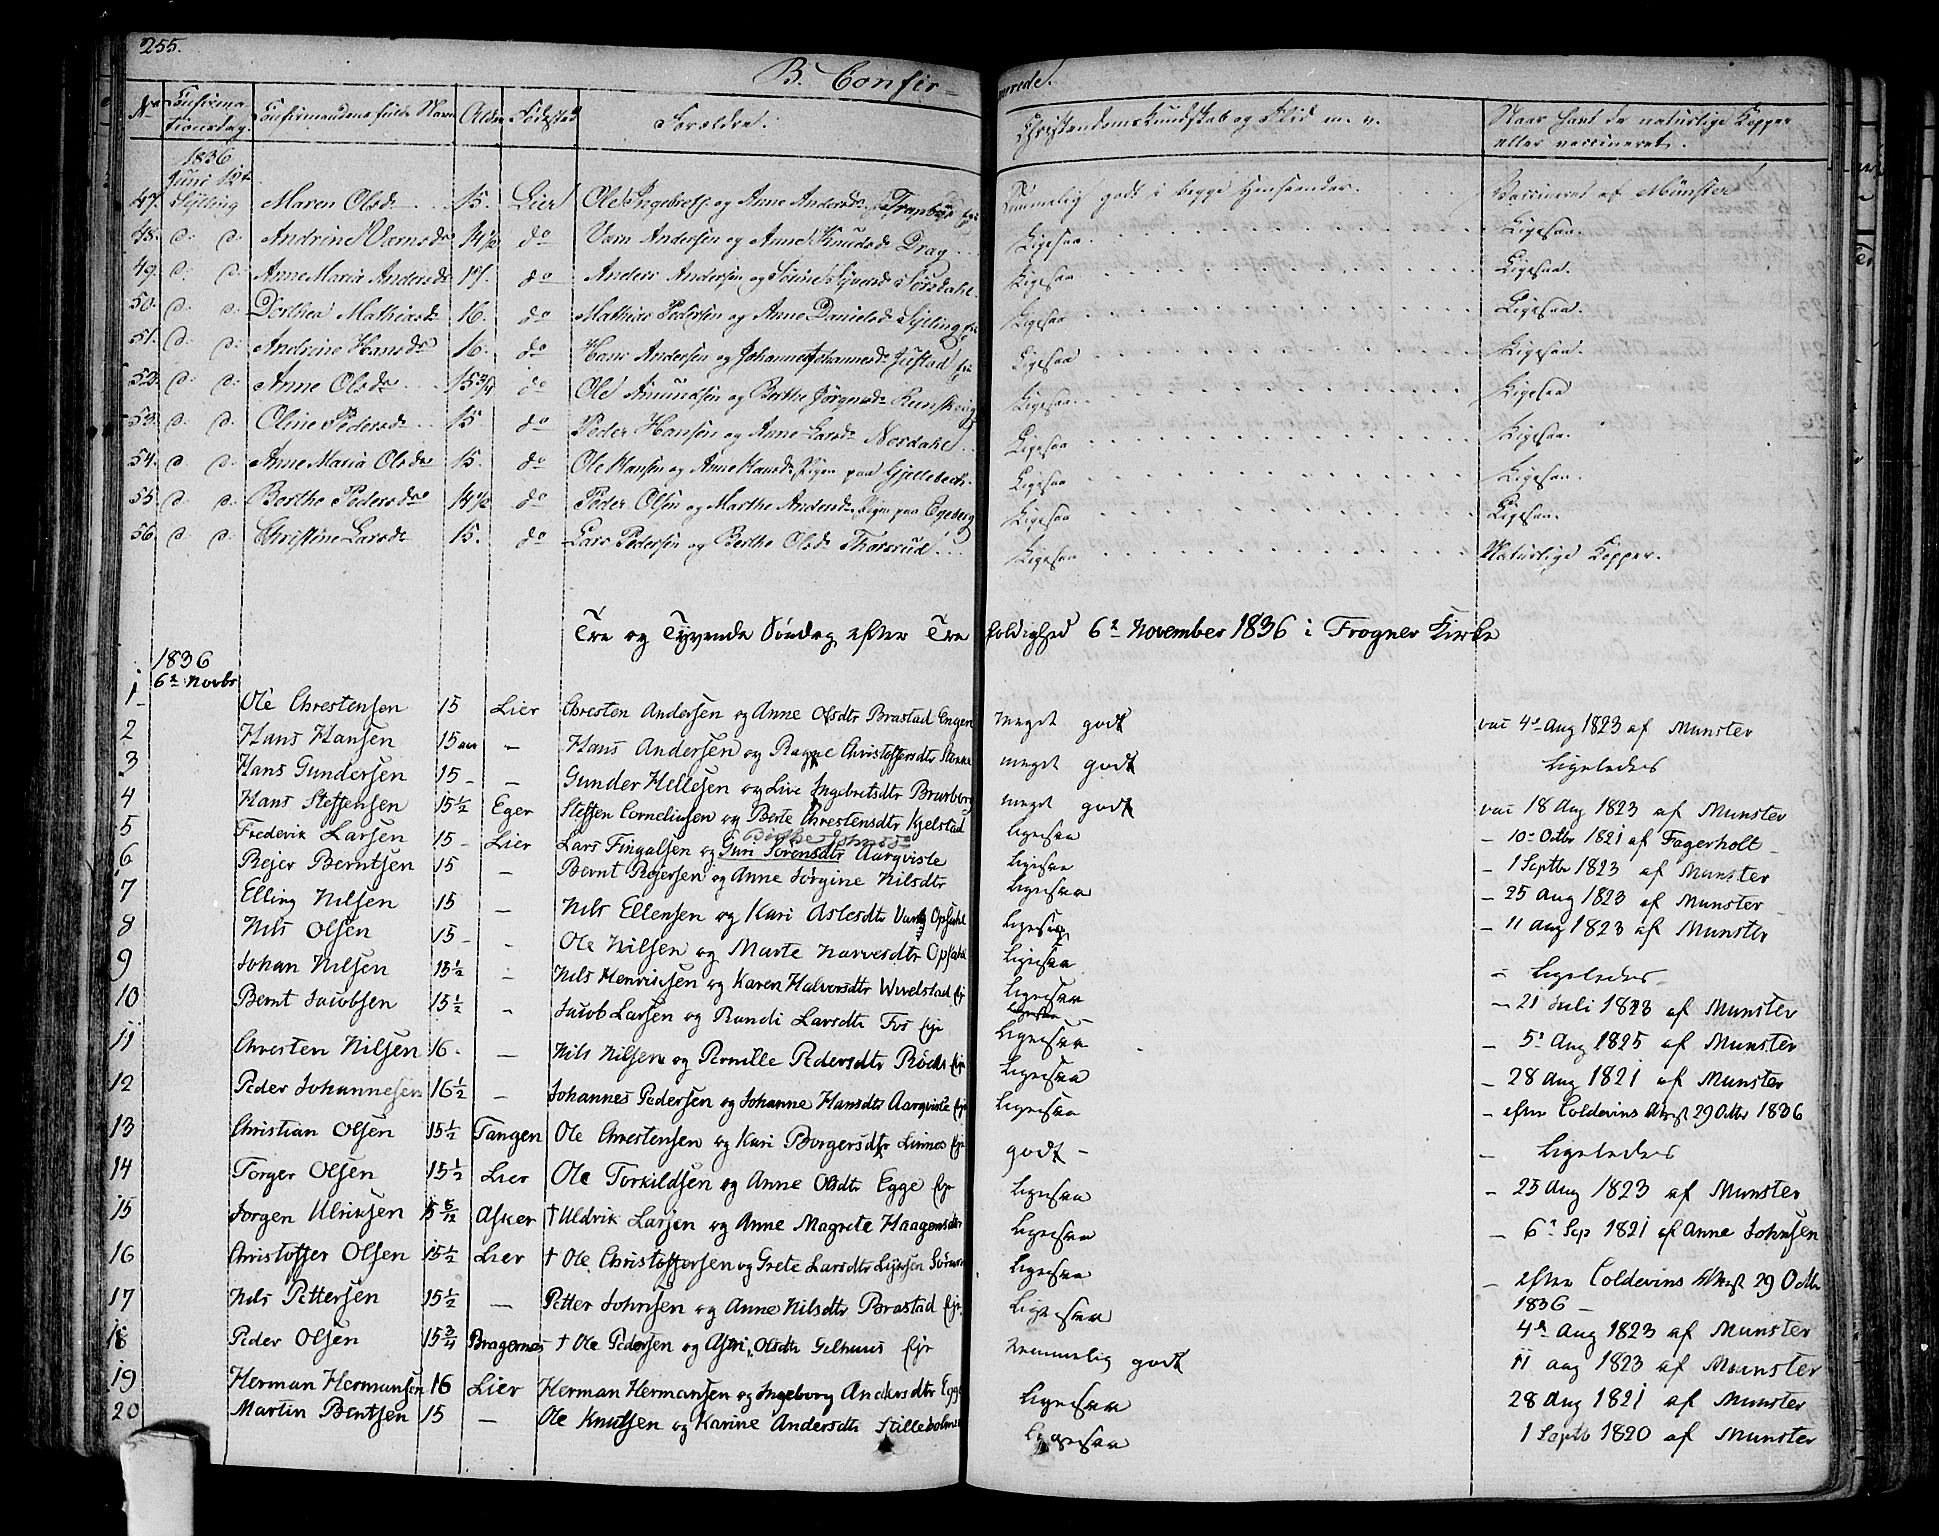 255.
B. Confir= merede.
No Confirmationsdag. Confirmandens fulde Navn Alder Fødested Forældre. Christendoms Kundskab og Flid m. v. Naar havt de naturlige Kopper eller vaccineret.
1836
Juni 12te
47. Sylling Maren Olsdr 15. Lier Ole Ingebrets. og Anne Andersdr Tranbye Temmelig godt i begge Henseender. Vaccineret af Münster
48. d: d: Andrine Varnsdr 14 1/2 do Varn Andersen og Anne Knudsdr Drag Ligesaa Ligesaa.
49. d: d: Anne Maria Andersdr 17. do Anders Andersen og Sørine Syversdr Sørsdahl Ligesaa Ligesaa.
50. d: d: Dorthea Mathiasdr 16. do Mathias Pedersen og Anne Danielsdr Sylling Ligesaa Ligesaa.
51. d: d: Andrine Hansdr 16. do Hans Andersen og Johanne Johannesdr Justad Ligesaa Ligesaa.
52. d: d: Anne Olsdr 15 3/4 do Ole Amundsen og Berthe Jørgensdr Ligesaa Ligesaa
53. d: d: Oline Pedersdr 15. do Peder Hansen og Anne Larsdr Nordahl Ligesaa Ligesaa.
54. d: d: Anne Maria Olsdr 15. do Ole Hansen og Anne Hansdr Pigen paa Gjellebech. Ligesaa Ligesaa.
55 d: d: Berthe Pedersdr 14 1/2 do Peder Olsen og Marthe Andersdr Pigen paa Egeberg Ligesaa Ligesaa.
56. d: d: Christine Larsdr 15. do Lars Pedersen og Berthe Olsdr Thorsrud Ligesaa Naturlige Kopper.
Tre og Tyvende Søndag efter Trefoldighed 6te November 1836 i Frogner Kirke
1836
6te Novbr
1 Ole Chrestensen 15 Lier Chresten Andersen og Anne Olsdtr Brastad Engen meget godt vac 4de Aug 1823 af Munster
2 Hans Hansen 15 aar – Hans Andersen og Ragne Christoffersdtr meget godt Ligeledes
3 Hans Gundersen 15 – – Gunder Hellesen og Live Ingebretsdtr Brurberg meget godt vac 18 Aug 1823 af Munster
4 Hans Steffensen 15 1/2 Eger Steffen Corneliusen og Berte Chrestensdtr Kjelstad Ligesaa – 10de Octbr 1821 af Fagerholt
Birthe Johnsdr
5 Frederik Larsen 15 – Lier Lars Fingalsen og Guri Sörensdtr Aarqviste Ligesaa – 1 Septbr 1823 af Munster
6 Rejer Berntsen 15 – Bernt Rejersen og Anne Jörgine Nilsdtr Ligesaa – 25 Aug 1823 af Munster
7 Elling Nilsen 15 – Nils Ellensen og Kari Aslesdtr Opsahl Ligesaa – 11 Aug 1823 af Munster
8 Nils Olsen 15 – – Ole Nilsen og Marte Narvesdtr Opsahl Ligesaa – Ligeledes
9 Johan Nilsen 15 1/2 – Nils Henriksen og Karen Halvorsdtr Wivelstad Ejr Ligesaa – 21 Juli 1823 af Munster
10 Bernt Jacobsen 15 1/2 – Jacob Larsen og Randi Larsdtr Fos Ejr Ligesaa – 5te Aug 1825 af Munster
11 Chresten Nilsen 16 – Nils Nilsen og Pernille Pedersdtr Ejr Ligesaa – 28 Aug 1821 af Munster
12 Peder Johannesen 16 1/2 – Johannes Pedersen og Johanne Hansdtr Aarqviste Ejr Ligesaa – efter Coldevins Attest 29 Octbr 1836
13 Christian Olsen 15 1/2 Tangen Ole Chrestensen og Kari Borgersdtr Linnes Ejr godt – – Ligeledes
14 Torger Olsen 15 1/2 Lier Ole Torkildsen og Anne Olsdtr Egge Ejr Ligesaa – 25 Aug 1823 af Munster
15 Jorgen Ulriksen 15 6/12 Asker † Uldrik Larsen og Anne Magrete Haagensdtr Ligesaa – 6te Sep 1821 af Anne Johnsen
16 Christoffer Olsen 15 1/2 Lier † Ole Christoffersen og Grete Larsdtr Ligesaa – efter Coldevins Attest 29 Octbr 1836
17 Nils Pettersen 15 1/2 – Petter Johnsen og Anne Nilsdtr Brastad Ejr. Ligesaa 4de Aug 1823 af Munster
18 Peder Olsen 15 3/4 Bragernes † Ole Pedersen og Astri Olsdtr Gilhuus Ejr temmelig godt 11 aug 1823 af Munster
19 Herman Hermansen 16 Lier Herman Hermansen og Ingeborg Andersdtr Egge Ligesaa 28 Aug 1821 af Munster
20 Martin Berntsen 15 – Ole Knutsen og Karine Andersdtr Ligesaa 1 Septb 1820 af Munster